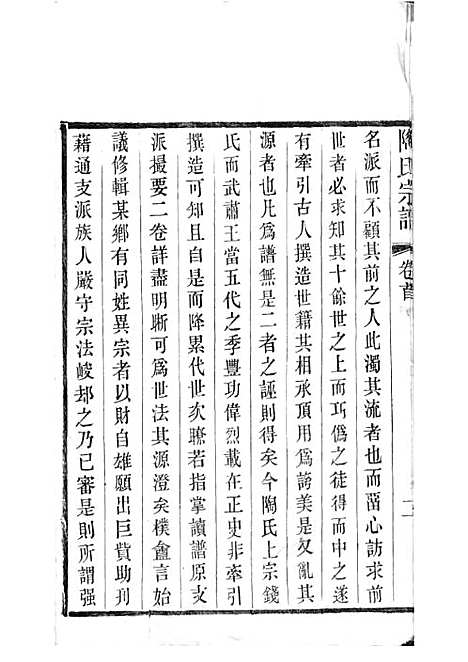 陶氏宗譜 卷首 二
名派而不顧其前之人此濁其流者也而畱心訪求前
世者必求知其十餘世之上而巧僞之徒得而中之遂
有牽引古人撰造世籍其相承頂用爲誇美是又亂其
源者也凡爲譜無是二者之誣則得矣今陶氏上宗錢
氏而武肅王當五代之季豐功偉烈載在正史非牽引
撰造可知且自是而降累代世次瞭若指掌讀譜原支
派撮要二卷詳盡明晰可爲世法其源澄矣樸龕言始
議修輯某鄉有同姓異宗者以財自雄願出巨貲助刋
藉通支派族人嚴守宗法峻却之乃已審是則所謂强